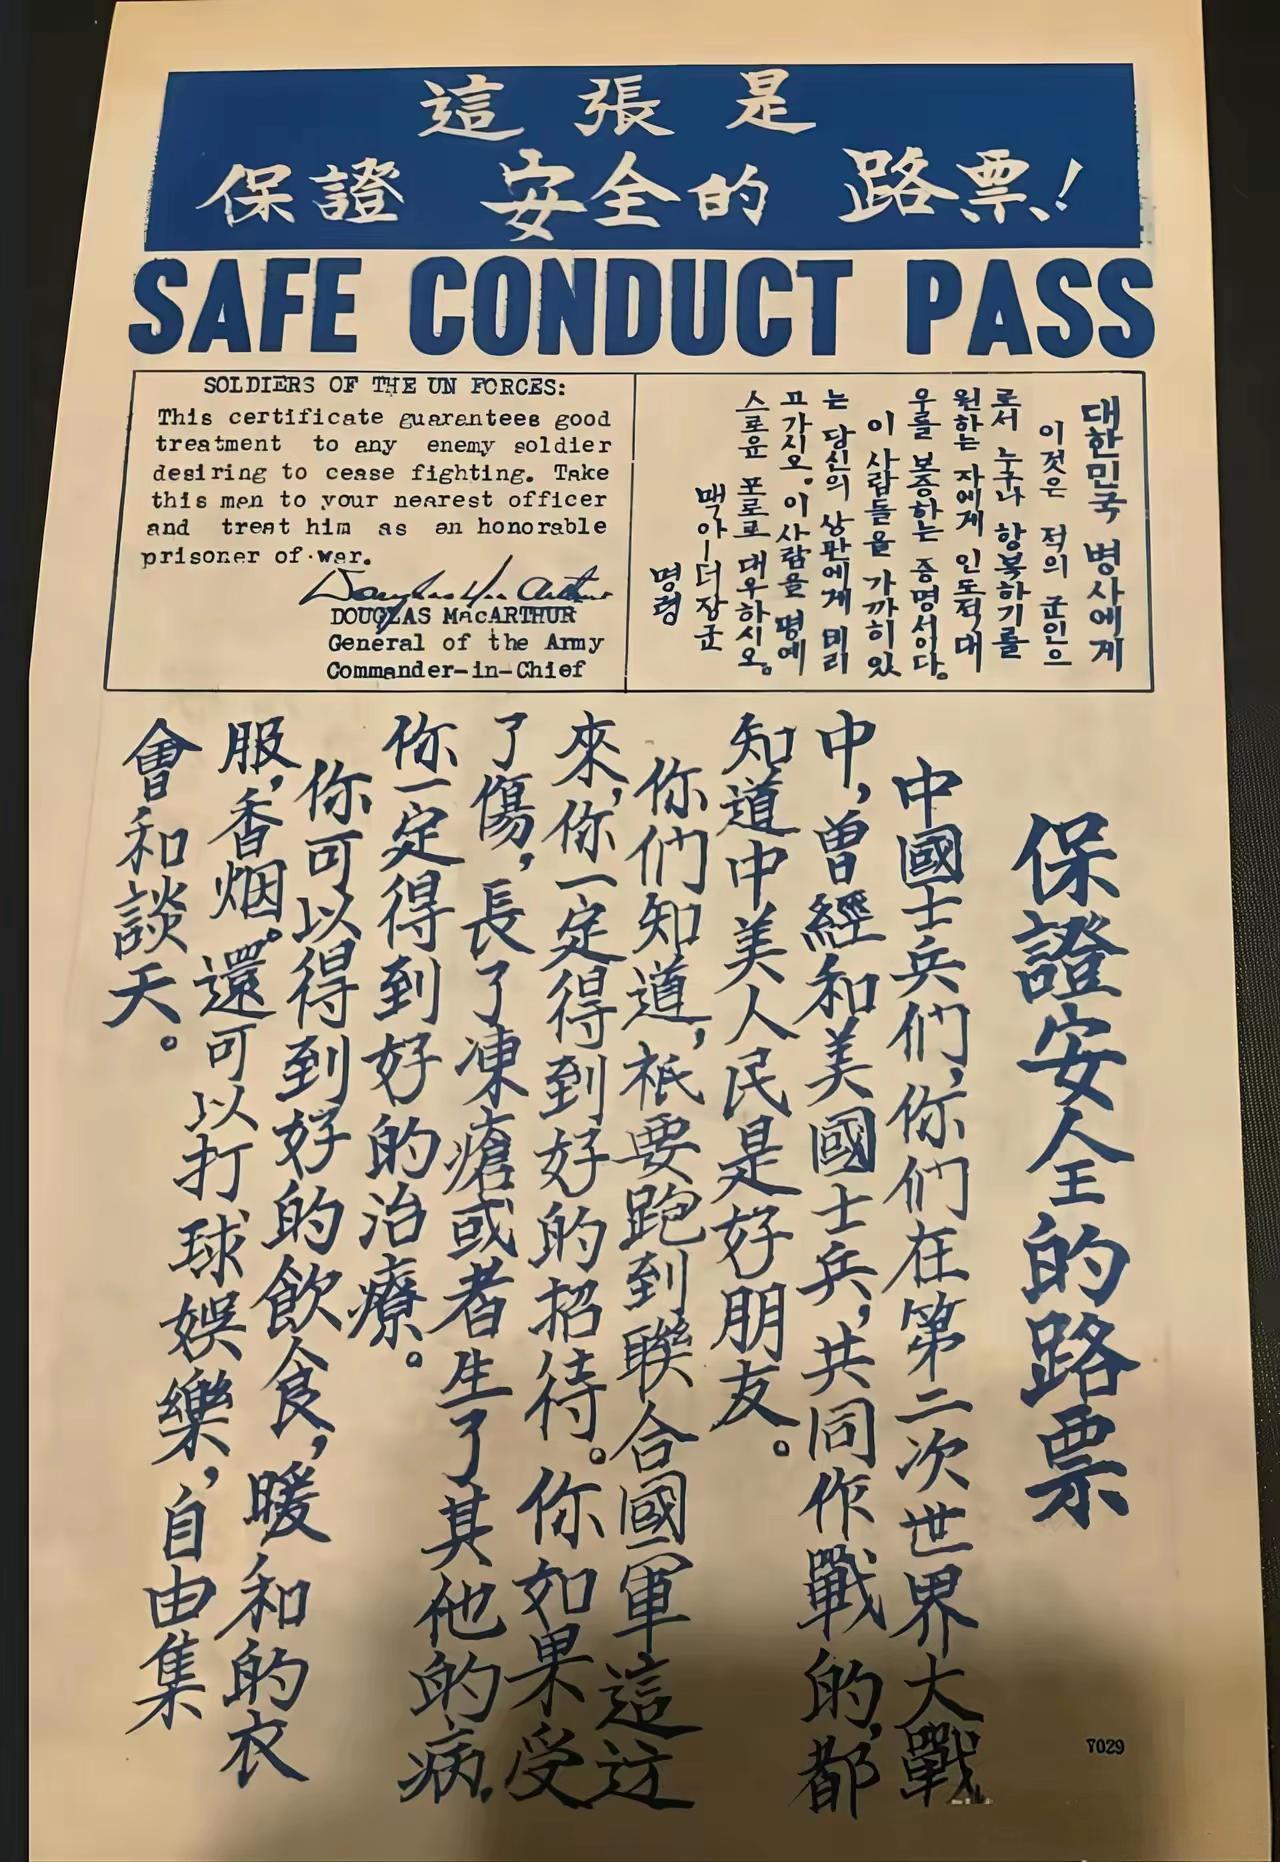 這張是
保證 安全的 路票！
SAFE CONDUCT PASS
SOLDIERS OF THE UN FORCES:
This certificate guarantees good
treatment to any enemy soldier
desiring to cease fighting. Take
this men to your nearest officer
and treat him as an honorable
prisoner of war.
Douglas MacArthur
DOUGLAS MacARTHUR
General of the Army
Commander-in-Chief
대한민국 병사에게
이것은 적의 군인으
로서 누구나 항복하기를
원하는 자에게 인도적대
우를 보증하는 증명서이다。
이 사람들을 가까히 있
는 당신의 상관에게 데리
고가시오。이사람을 명예
스로운 포로로 대우하시오。
맥아ー더장군
명령
保證安全的路票
中國士兵們，你們在第二次世界大戰
中，曾經和美國士兵，共同作戰的，都
知道中美人民是好朋友。
你們知道，祇要跑到聯合國軍這边
來，你一定得到好的招待。你如果受
了傷，長了凍瘡或者生了其他的病，
你一定得到好的治療。
你可以得到好的飲食，暖和的衣
服，香烟。還可以打球娛樂，自由集
會和談天。
7029